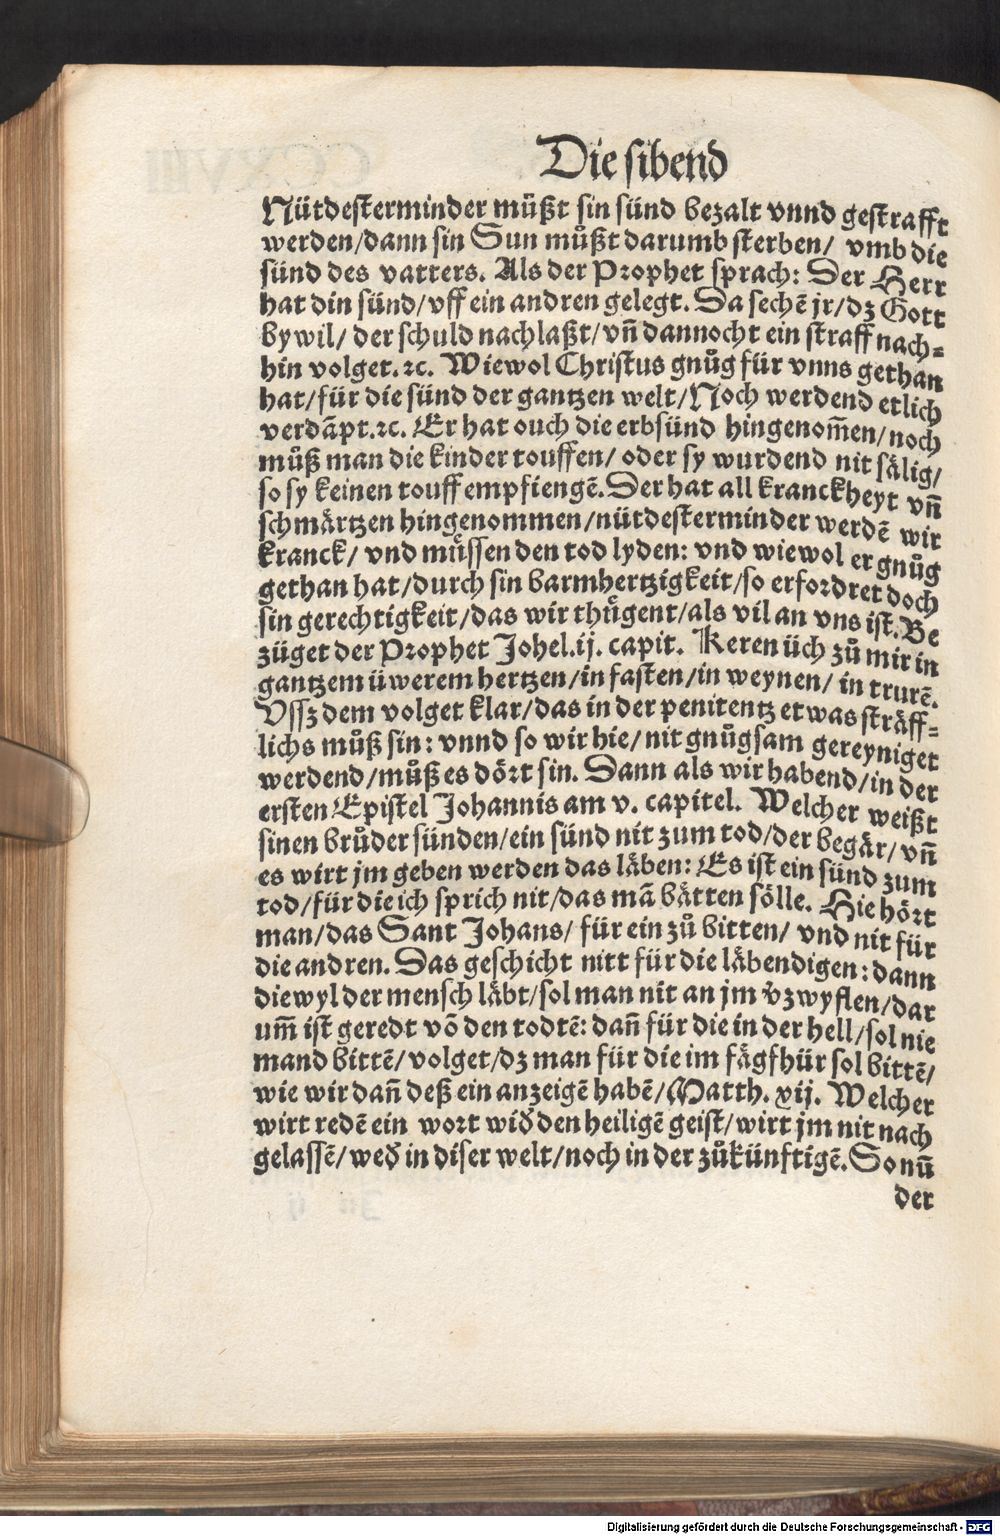 Die sibend
Nütdesterminder müßt sin sünd bezalt vnnd gestrafft
werden/dann sin Sun můßt darumb sterben/ vmb die
sünd des vatters. Als der Prophet sprach: Der Herr
hat din sünd/vff ein andren gelegt. Da sechẽ jr/dz Gott
bywil/ der schuld nachlaßt/vñ dannocht ein straff nach⸗
hin volget.ꝛc. Wiewol Christus gnůg für vnns gethan
hat/für die sünd der gantzen welt/Noch werdend etlich
verdãpt.ꝛc. Er hat ouch die erbsünd hingenom̃en/noch
můß man die kinder touffen/ oder sy wurdend nit sälig/
so sy keinen touff empfiengẽ. Der hat all kranckheyt vñ
schmärtzen hingenommen/nütdesterminder werdẽ wir
kranck/ vnd müssen den tod lyden: vnd wiewol er gnůg
gethan hat/durch sin barmhertzigkeit/so erfordret doch
sin gerechtigkeit/das wir thügent/als vil an vns ist. Be
züget der Prophet Johel.ij. capit. Keren üch zů mir in
gantzem üwerem hertzen/in fasten/in weynen/ in trurẽ.
Vssz dem volget klar/das in der penitentz etwas sträff⸗
lichs můß sin: vnnd so wir hie/ nit gnůgsam gereyniget
werdend/můß es dört sin. Dann als wir habend/in der
ersten Epistel Johannis am v. capitel. Welcher weißt
sinen brůder sünden/ein sünd nit zum tod/der begär/ vñ
es wirt jm geben werden das läben: Es ist ein sünd zum
tod/für die ich sprich nit/das mã bätten sölle. Hie hört
man/das Sant Johans/ für ein zů bitten/ vnd nit für
die andren. Das geschicht nitt für die läbendigen: dann
diewyl der mensch läbt/sol man nit an jm v̉zwyflen/dar
um̃ ist geredt võ den todtẽ: dañ für die in der hell/sol nie
mand bittẽ/volget/dz man für die im fägfhür sol bittẽ/
wie wir dañ deß ein anzeigẽ habẽ/Matth. xij. Welcher
wirt redẽ ein wort wid̉ den heiligẽ geist/wirt jm nit nach
gelassẽ/wed̉ in diser welt/noch in der zůkünftigẽ. So nũ
der
Digitalisierung gefördert durch die Deutsche Forschungsgemeinschaft - DFG